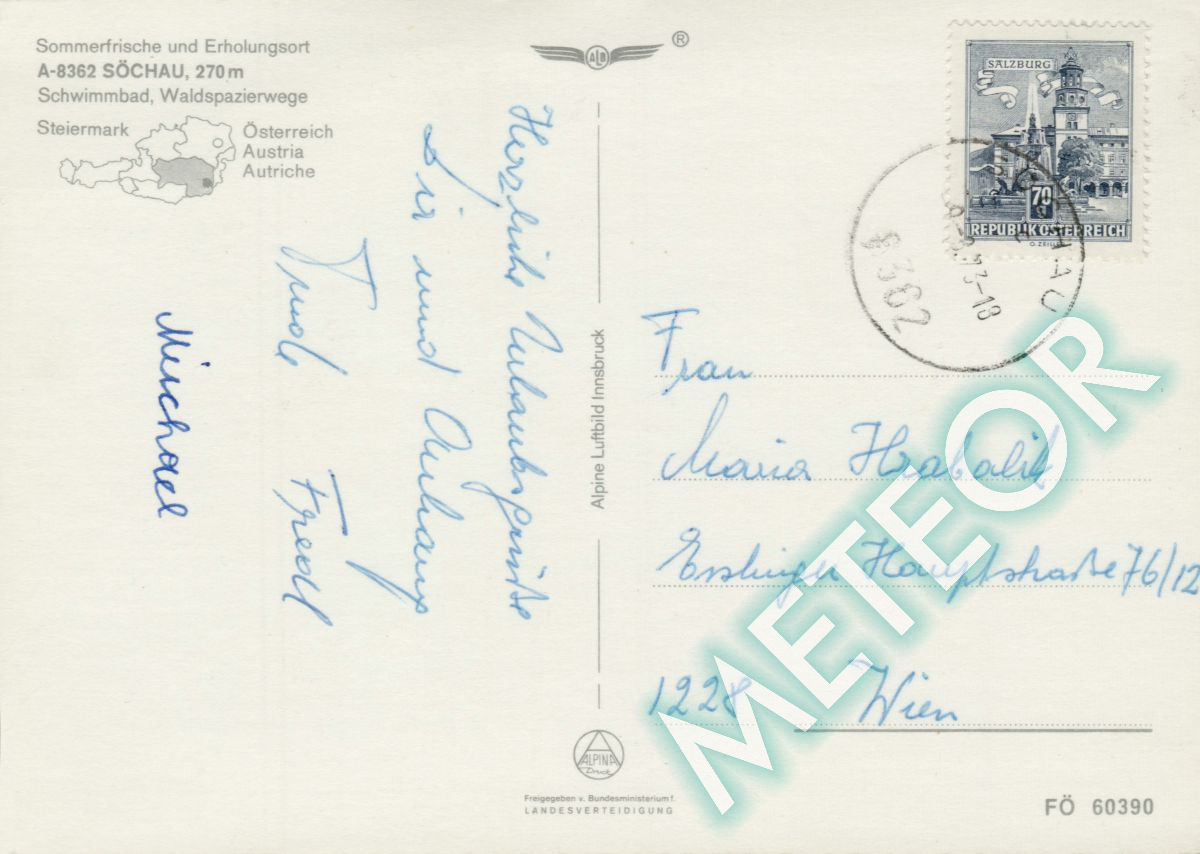 Sommerfrische und Erholungsort
A-8362 SÖCHAU, 270 m
Schwimmbad, Waldspazierwege
Steiermark
Österreich
Austria
Autriche
ALB
®
SALZBURG
70
REPUBLIK ÖSTERREICH
O. ZEILLER
8362
SÖCHAU
73-18
Herzliche Urlaubsgrüße
Dir und Anhang
Trude Fredl
Michael
Alpine Luftbild Innsbruck
Frau
Maria Hrabalik
Esslinger Hauptstraße 76/12
1228 Wien
METEOR
ALPINA
Druck
Freigegeben v. Bundesministerium f.
LANDESVERTEIDIGUNG
FÖ 60390